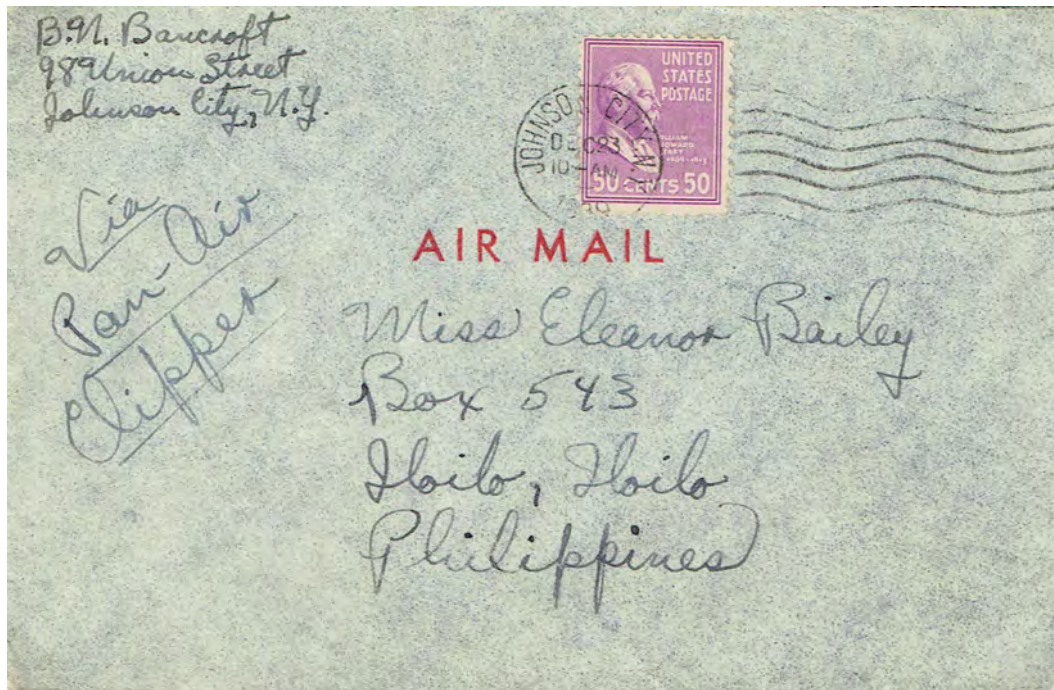 B.N. Bancroft
989 Union Street
Johnson City, N.Y.
UNITED
STATES
POSTAGE
WILLIAM
HOWARD
TAFT
1909-1913
50 CENTS 50
JOHNSON CITY N.Y.
DEC 23
10-AM
AIR MAIL
Via
Pan-Air
Clipper
Miss Eleanor Bailey
Box 543
Iloilo, Iloilo
Philippines